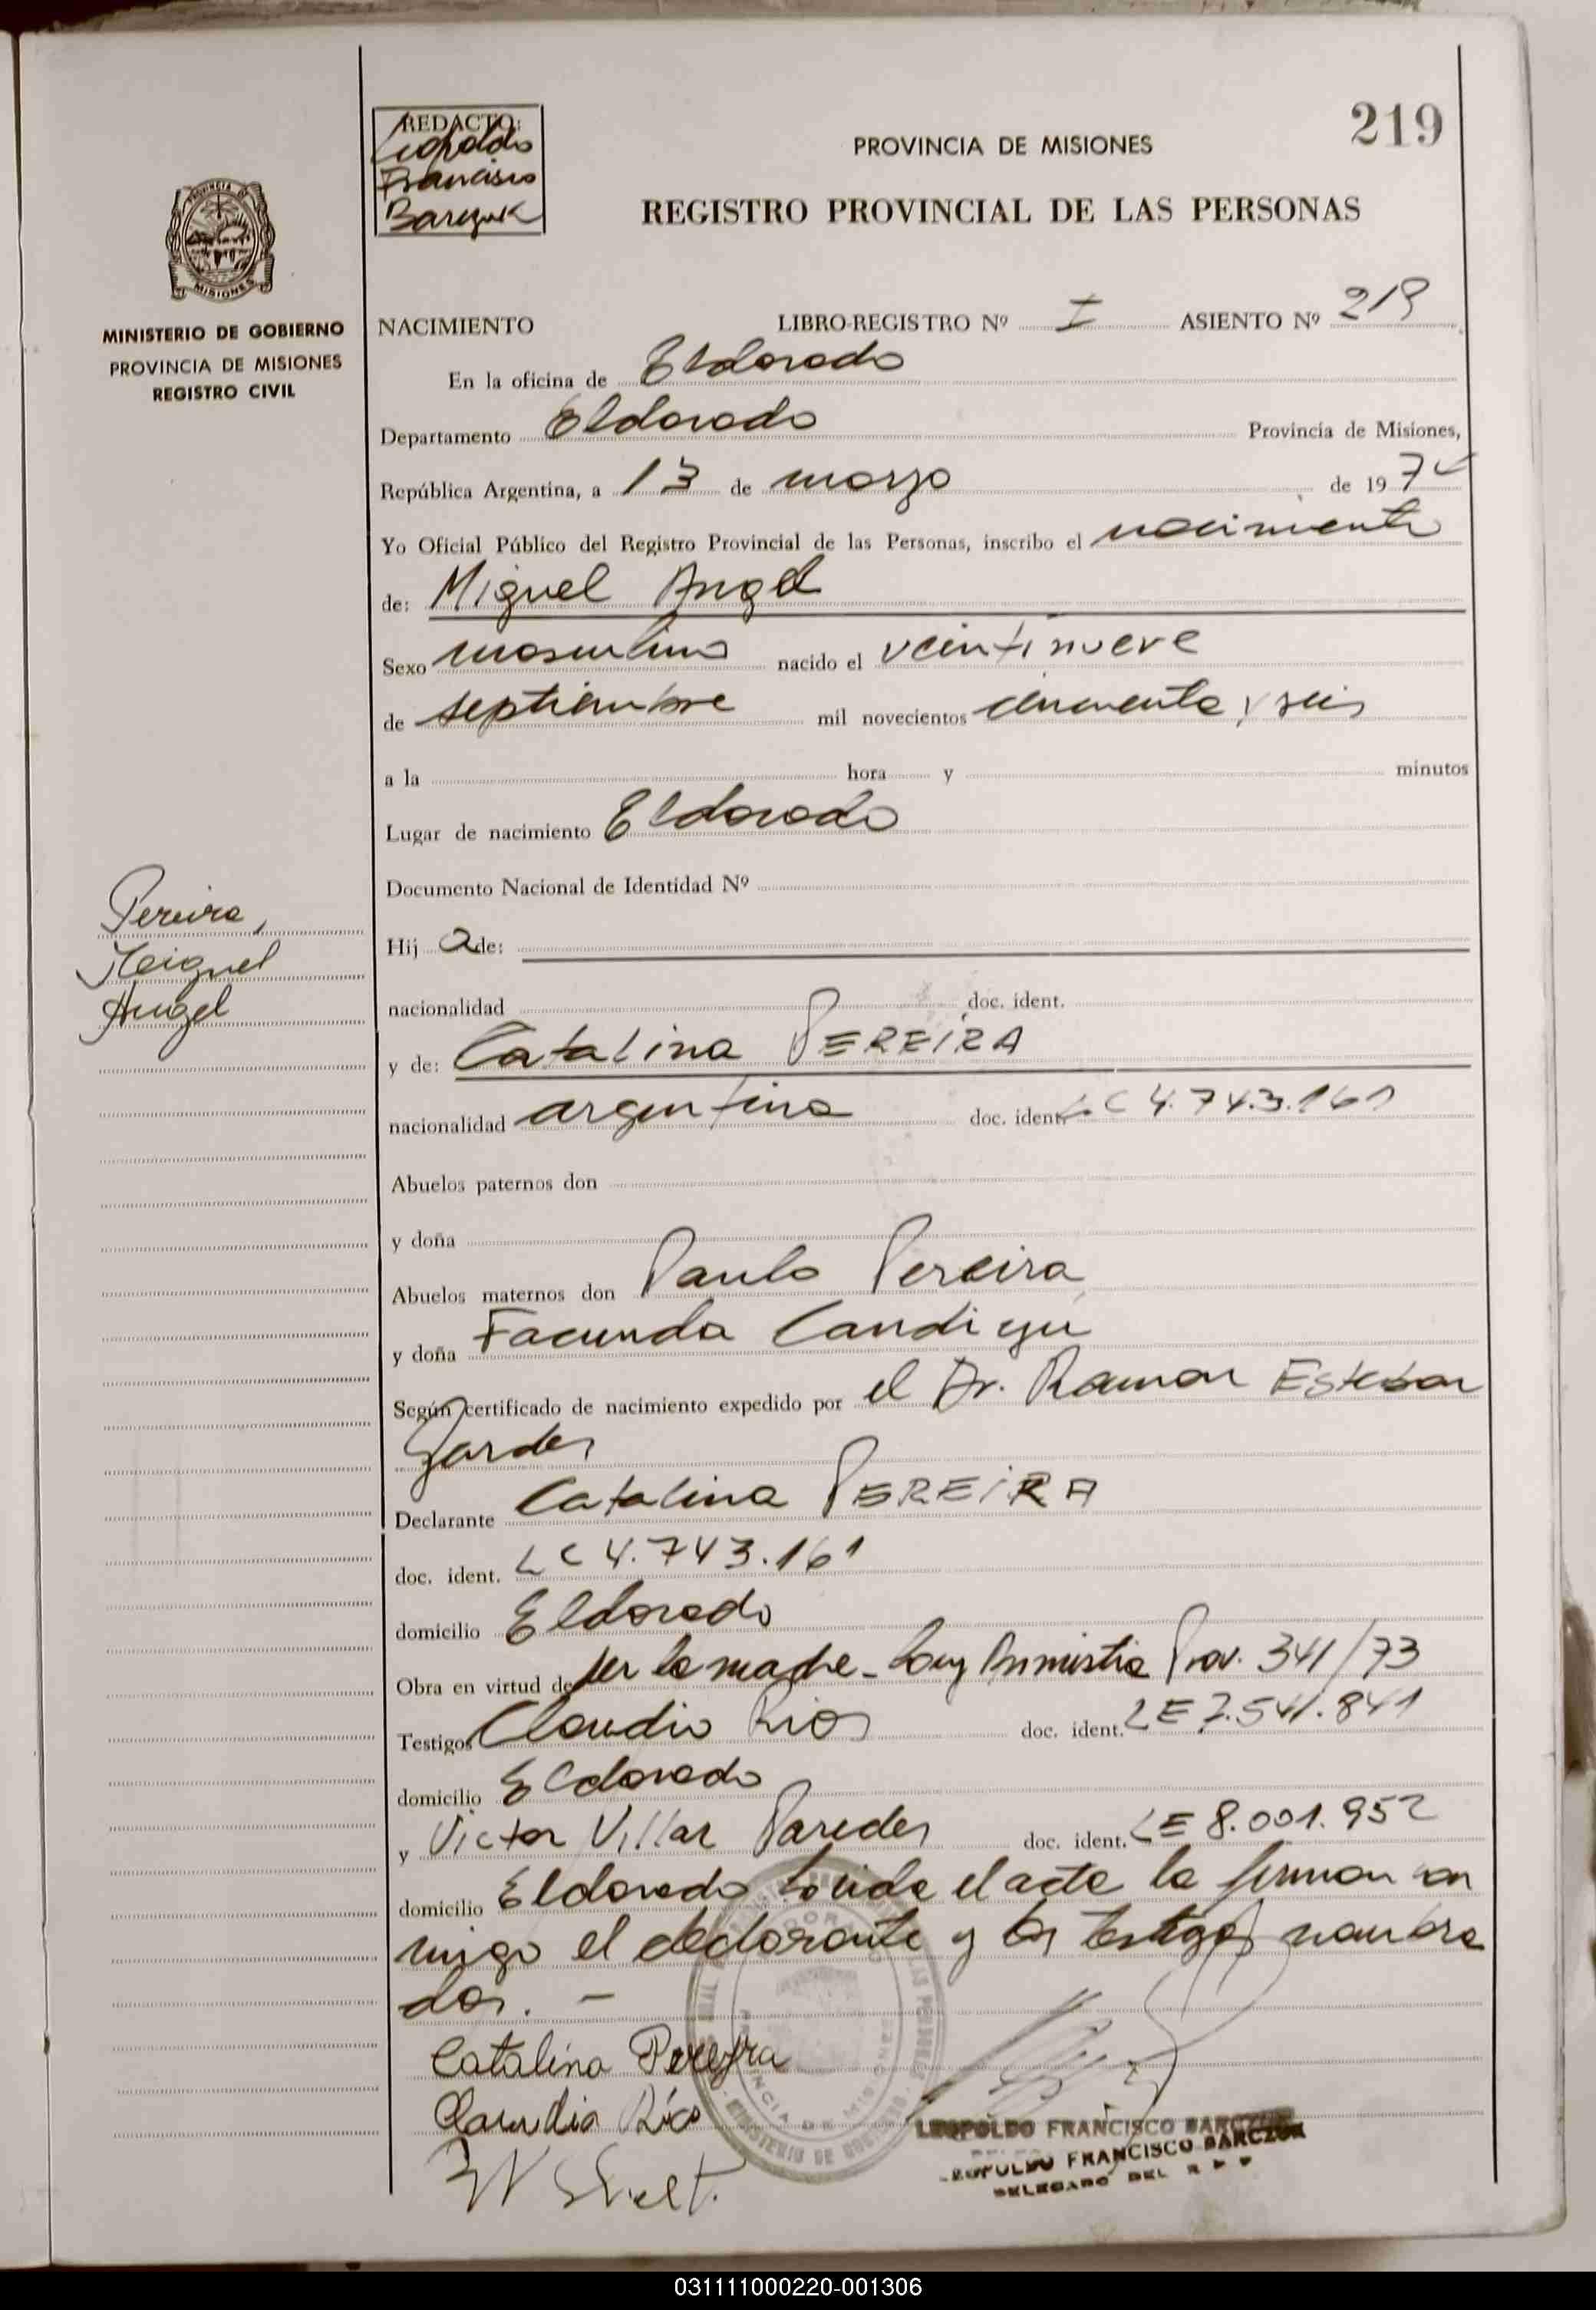 219
REDACTO:
Leopoldo
Francisco
Barczuk
PROVINCIA DE MISIONES
REGISTRO PROVINCIAL DE LAS PERSONAS
PROVINCIA DE
MISIONES
MINISTERIO DE GOBIERNO
PROVINCIA DE MISIONES
REGISTRO CIVIL
NACIMIENTO LIBRO-REGISTRO Nº I ASIENTO Nº 219
En la oficina de Eldorado
Departamento Eldorado Provincia de Misiones,
República Argentina, a 13 de marzo de 1974
Yo Oficial Público del Registro Provincial de las Personas, inscribo el nacimiento
de: Miguel Angel
Sexo masculino nacido el veintinueve
de septiembre mil novecientos cincuenta y seis
a la hora y minutos
Lugar de nacimiento Eldorado
Documento Nacional de Identidad Nº
Pereira,
Miguel
Angel
Hij o de:
nacionalidad doc. ident.
y de: Catalina PEREIRA
nacionalidad argentina doc. ident. LC 4.743.161
Abuelos paternos don
y doña
Abuelos maternos don Paulo Pereira
y doña Facunda
Según certificado de nacimiento expedido por el Dr. Ramon Esteban
Declarante Catalina PEREIRA
doc. ident. LC 4.743.161
domicilio Eldorado
Obra en virtud de ser la madre - Ley Amnistia Prov. 341/73
Testigos Claudio Rios doc. ident. LE 7.541.841
domicilio Eldorado
y Victor Villar Paredes doc. ident. LE 8.001.952
domicilio Eldorado Leida el acta la firman con
migo el declarante y los testigos nombra
dos. -
Catalina Pereyra
Claudio Ríos
LEOPOLDO FRANCISCO BARCZUK
LEOPOLDO FRANCISCO BARCZUK
DELEGADO DEL R P P
031111000220-001306